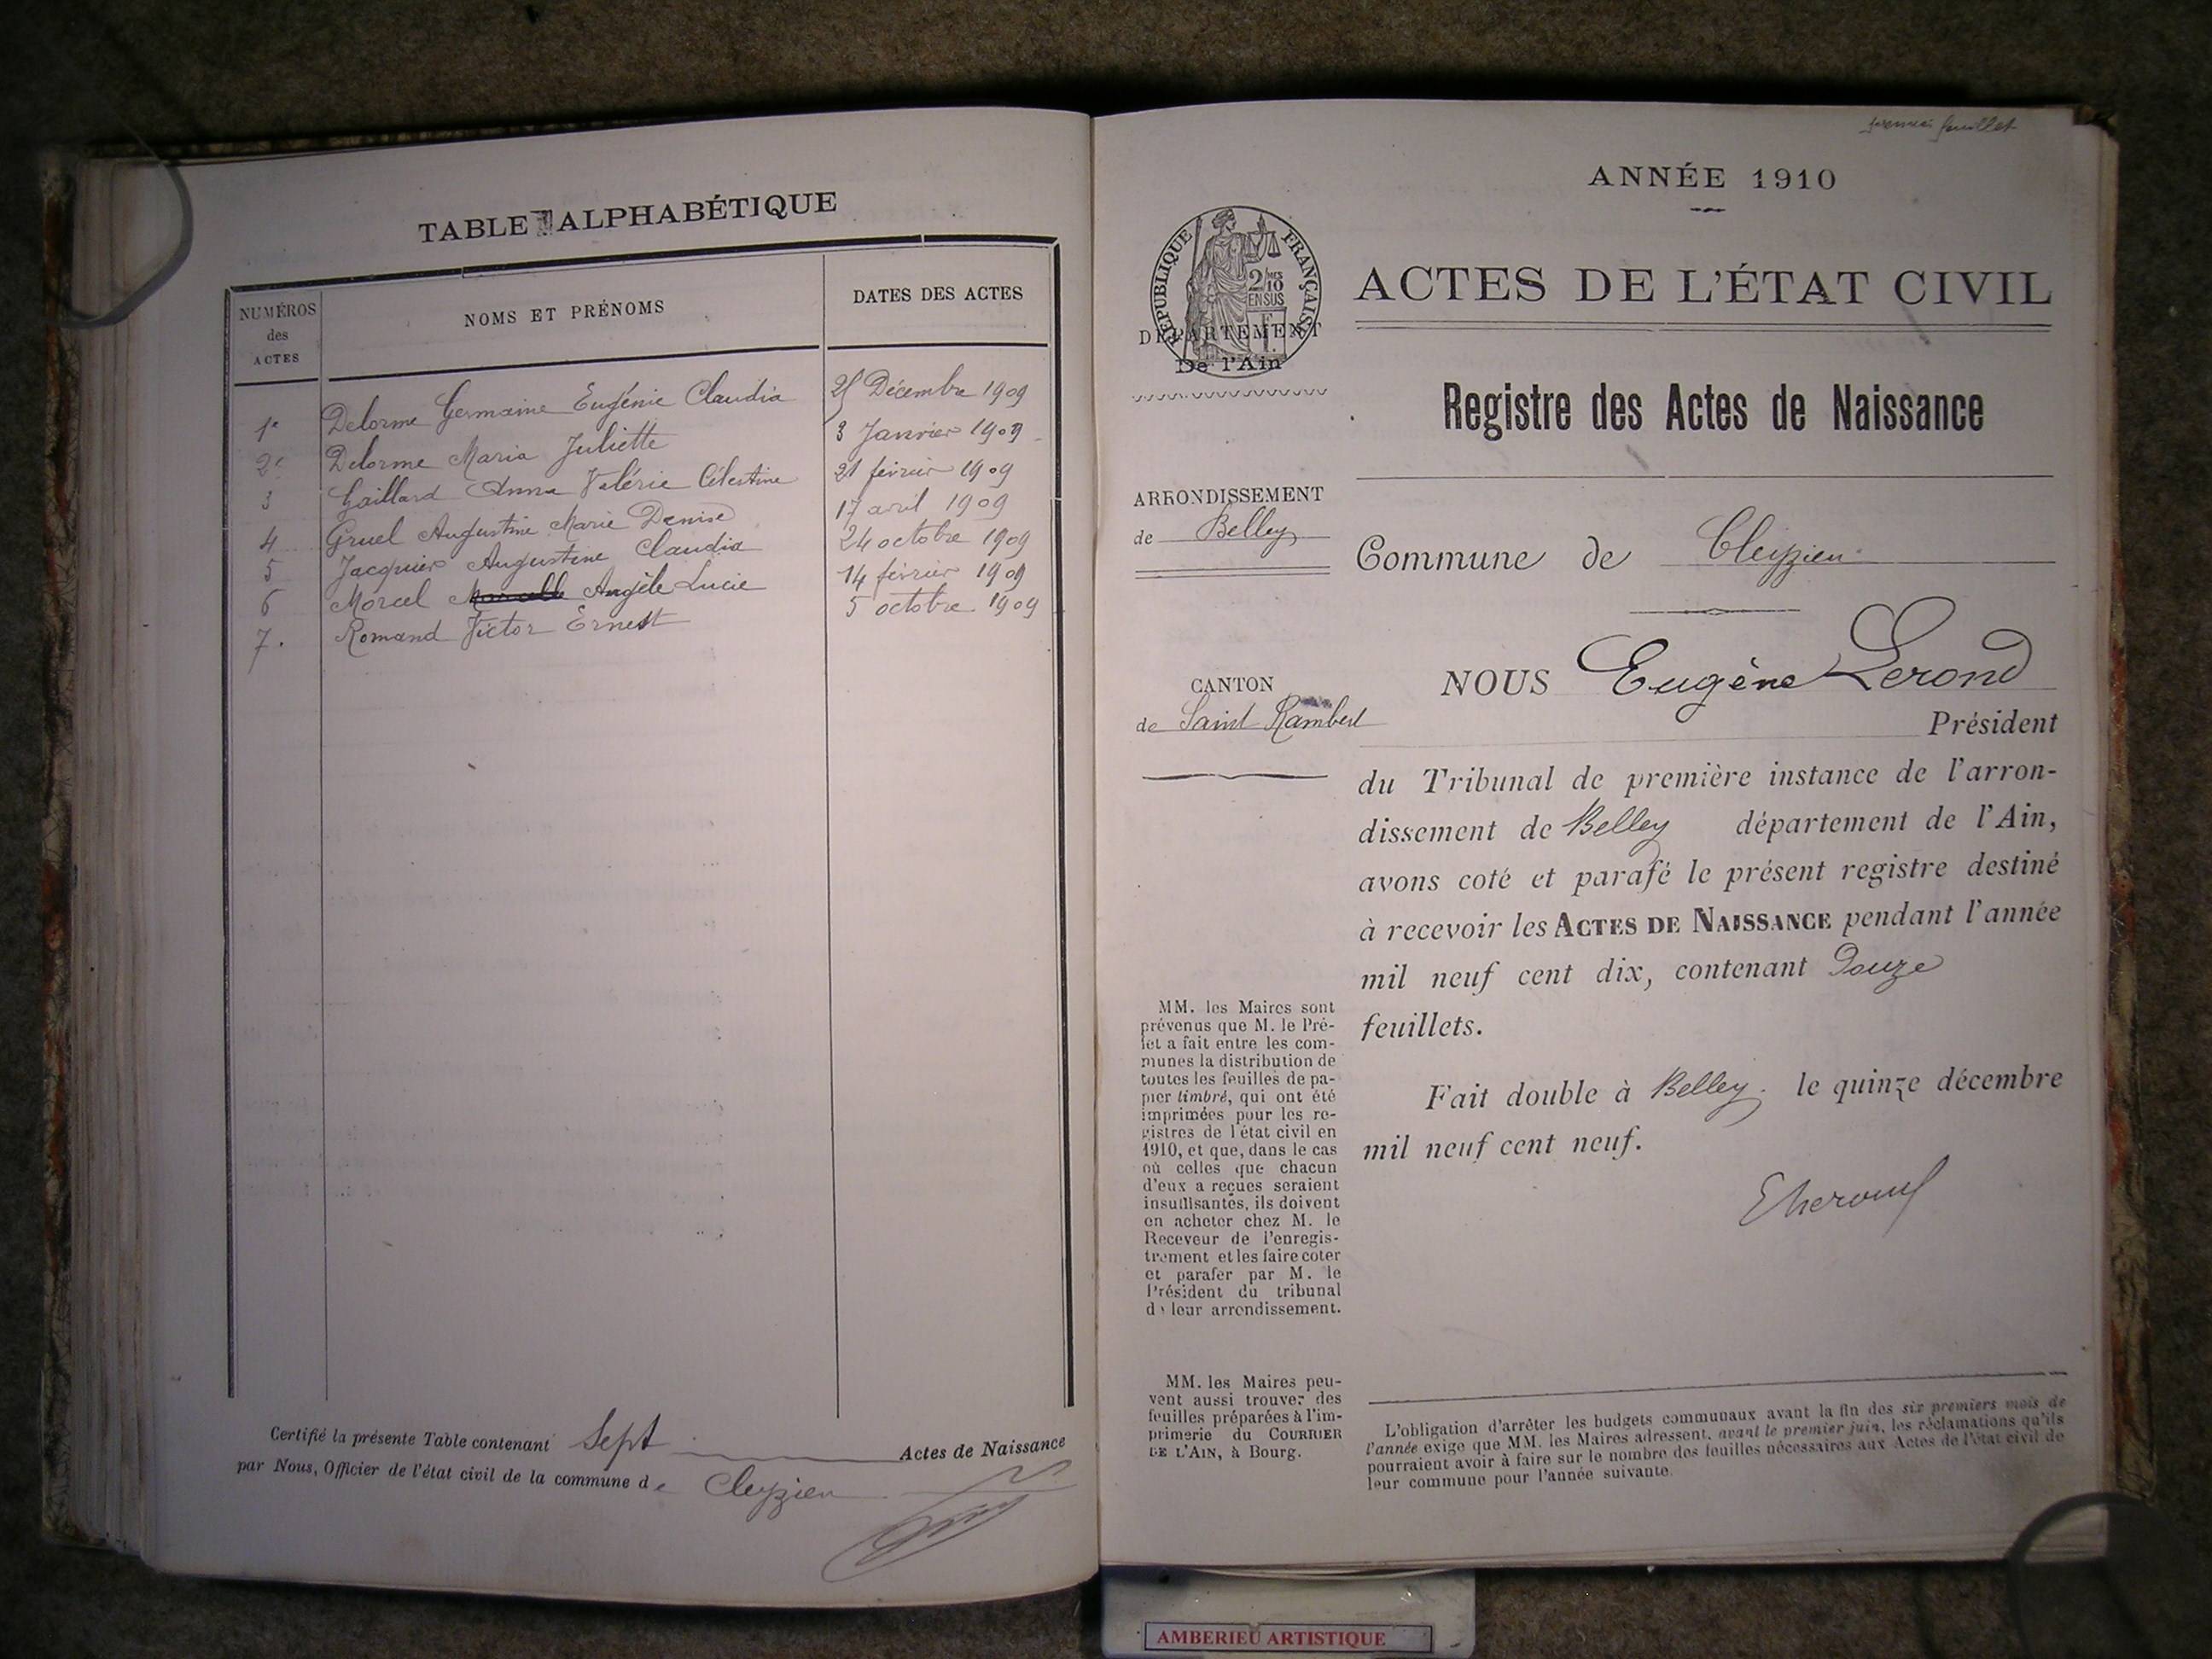 TABLE ALPHABÉTIQUE
NUMÉROS des ACTES
NOMS ET PRÉNOMS
DATES DES ACTES
1e Delorme Germaine Eugénie Claudia Décembre 1909
2e Delorme Maria Juliette 3 Janvier 1909
3 Gaillard Anna Valérie Célestine 21 février 1909
4 Gruel Augustine Marie Denise 17 avril 1909
5 Jacquier Augustine Claudia 24 octobre 1909
6 Morcel Angèle Lucie 14 février 1909
7. Romand Victor Ernest 5 octobre 1909
Certifié la présente Table contenant Sept Actes de Naissance
par Nous, Officier de l'état civil de la commune de Cleyzieu
premier feuillet
ANNÉE 1910
RÉPUBLIQUE FRANÇAISE
2/10 MES
EN SUS
DÉPARTEMENT
De l'Ain
ACTES DE L'ÉTAT CIVIL
Registre des Actes de Naissance
ARRONDISSEMENT
de Belley
Commune de Cleyzieu
CANTON
de Saint Rambert
NOUS Eugène Lerond
Président
du Tribunal de première instance de l'arron-
dissement de Belley département de l'Ain,
avons coté et parafé le présent registre destiné
à recevoir les ACTES DE NAISSANCE pendant l'année
mil neuf cent dix, contenant Douze
feuillets.
Fait double à Belley. le quinze décembre
mil neuf cent neuf.
MM. les Maires sont
prévenus que M. le Pré-
fet a fait entre les com-
munes la distribution de
toutes les feuilles de pa-
pier timbré, qui ont été
imprimées pour les re-
gistres de l'état civil en
1910, et que, dans le cas
où celles que chacun
d'eux a reçues seraient
insuffisantes, ils doivent
en acheter chez M. le
Receveur de l'enregis-
trement et les faire coter
et parafer par M. le
Président du tribunal
de leur arrondissement.
MM. les Maires peu-
vent aussi trouver des
feuilles préparées à l'im-
primerie du COURRIER
DE L'AIN, à Bourg.
L'obligation d'arrêter les budgets communaux avant la fin des six premiers mois de
l'année exige que MM. les Maires adressent, avant le premier juin, les réclamations qu'ils
pourraient avoir à faire sur le nombre des feuilles nécessaires aux Actes de l'état civil de
leur commune pour l'année suivante.
AMBERIEU ARTISTIQUE